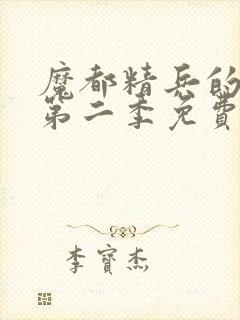 魔都精兵的
第二季免費
李寶杰